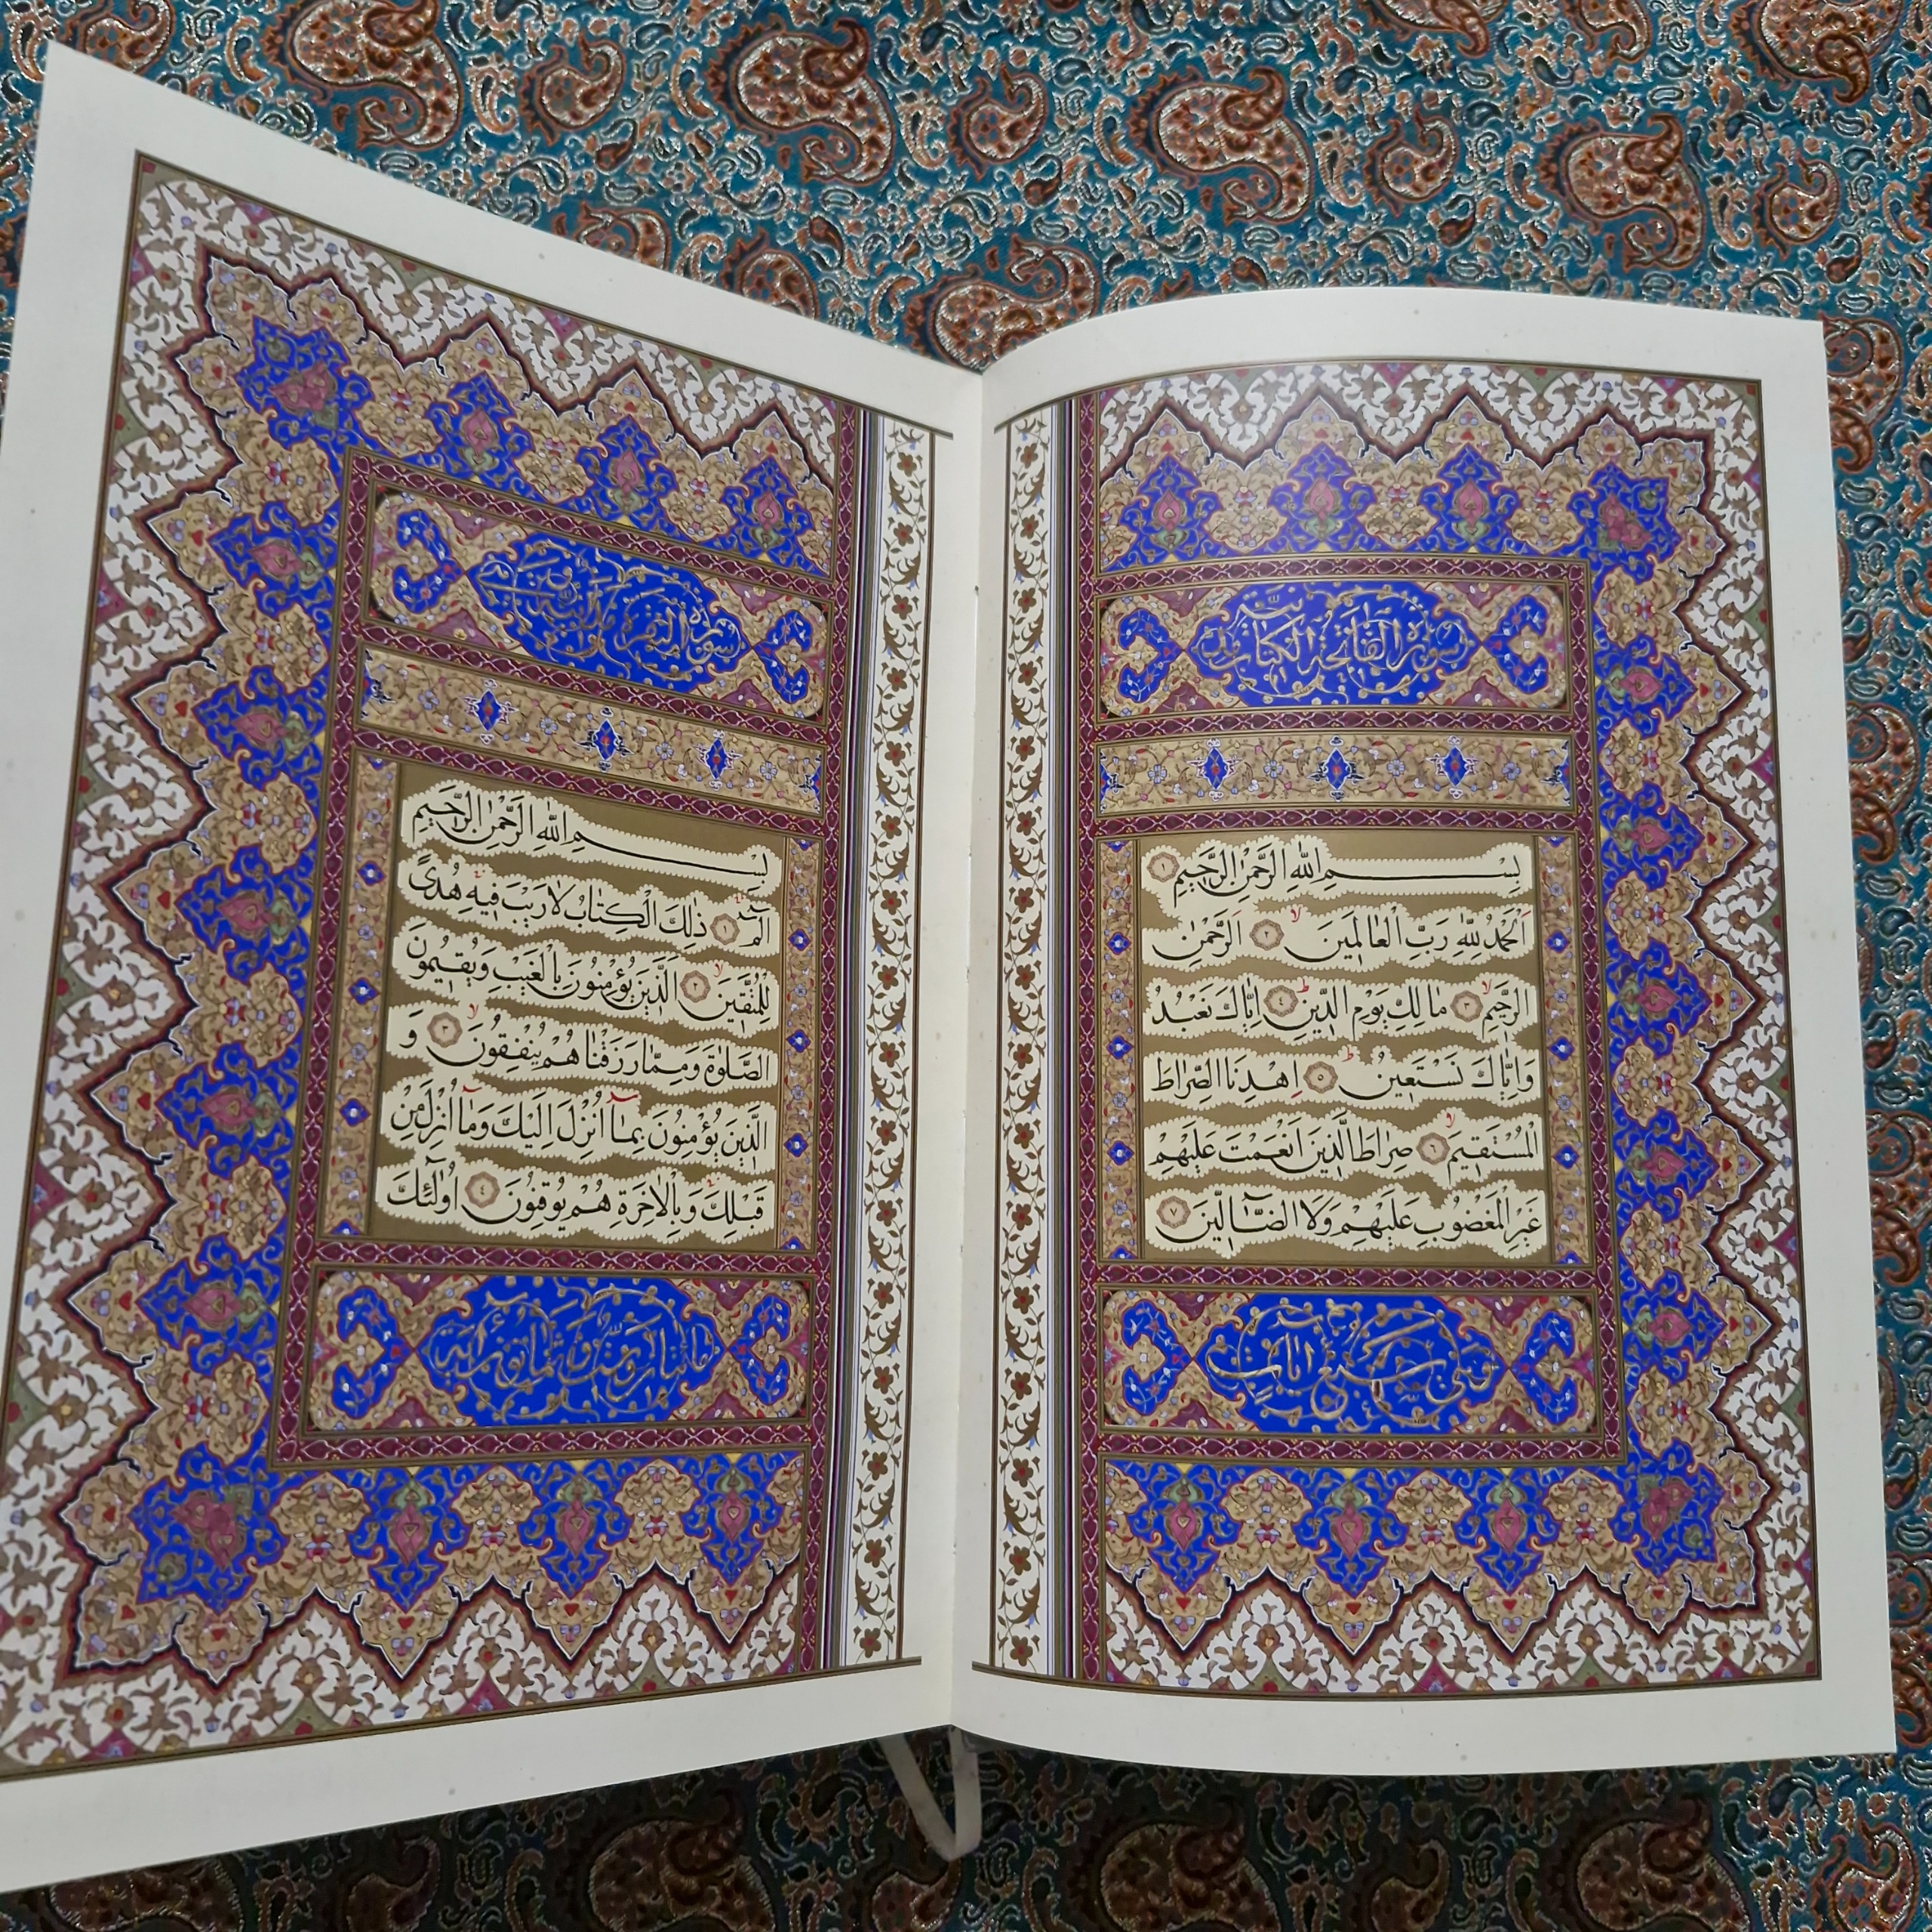 سورة الفاتحة الكتاب
بِسْمِ اللهِ الرَّحْمٰنِ الرَّحِيمِ ١
اَلْحَمْدُ لِلّٰهِ رَبِّ الْعَالَمِينَ ٢ اَلرَّحْمٰنِ
الرَّحِيمِ ٣ مَالِكِ يَوْمِ الدِّينِ ٤ اِيَّاكَ نَعْبُدُ
وَاِيَّاكَ نَسْتَعِينُ ٥ اِهْدِنَا الصِّرَاطَ
الْمُسْتَقِيمَ ٦ صِرَاطَ الَّذِينَ اَنْعَمْتَ عَلَيْهِمْ
غَيْرِ الْمَغْضُوبِ عَلَيْهِمْ وَلَا الضَّالِّينَ ٧
وهي سبع آيات
سورة البقرة مدنية وهي
بِسْمِ اللهِ الرَّحْمٰنِ الرَّحِيمِ
الٓمٓ ١ ذٰلِكَ الْكِتَابُ لَا رَيْبَ فِيهِ هُدًى
لِلْمُتَّقِينَ ٢ اَلَّذِينَ يُؤْمِنُونَ بِالْغَيْبِ وَيُقِيمُونَ
الصَّلٰوةَ وَمِمَّا رَزَقْنَاهُمْ يُنْفِقُونَ ٣ وَ
الَّذِينَ يُؤْمِنُونَ بِمَٓا اُنْزِلَ اِلَيْكَ وَمَٓا اُنْزِلَ مِنْ
قَبْلِكَ وَبِالْاٰخِرَةِ هُمْ يُوقِنُونَ ٤ اُولٰٓئِكَ
مائتان وست وثمانون آية